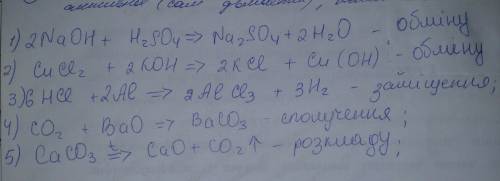 активне (сам
1) 2NaOH + H₂SO₄ => Na₂SO₄ + 2H₂O - обміну
2) CuCl₂ + 2KOH => 2KCl + Cu(OH)² - обміну
3) 6HCl + 2Al => 2AlCl₃ + 3H₂ - заміщення;
4) CO₂ + BaO => BaCO₃ - сполучення;
5) CaCO₃ =t> CaO + CO₂↑ - розкладу;